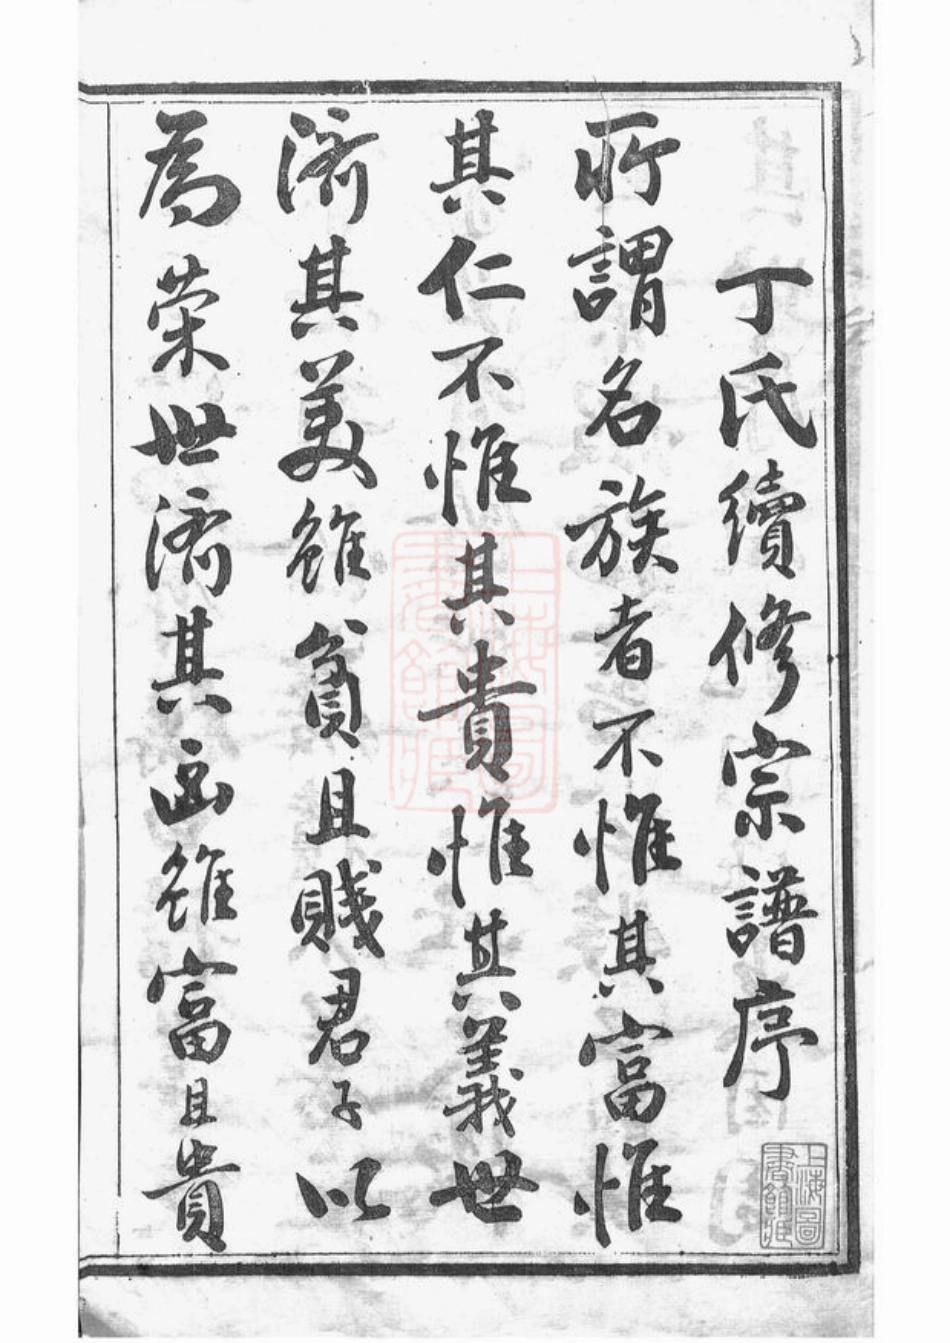 丁氏續修宗譜序
所謂名族者不惟其富惟
其仁不惟其貴惟其義世
濟其美雖貧且賤君子以
為榮世濟其凶雖富且貴
上海圖書館藏
上海圖書館藏